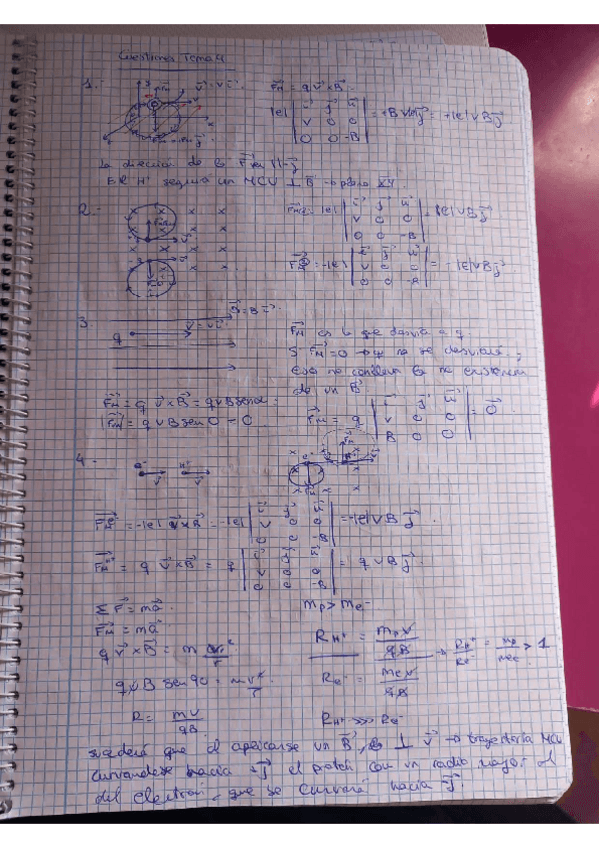 Cuestiones Tema 4
1.-
F_M = q v⃗ × B⃗
|e| | i⃗ j⃗ k⃗ | v 0 0 | 0 0 -B | = +B v|e| j⃗ = +|e|vB j⃗
la dirección de la F_M es
El H⁺ seguiría un MCU ⊥ B⃗ → plano XY
2.-
= -|e| | i⃗ j⃗ k⃗ | v 0 0 | 0 0 -B | = |e|vB j⃗
= -|e| | i⃗ j⃗ k⃗ | v 0 0 | 0 0 -B | = -|e|vB j⃗
3.
B⃗ = B i⃗
q
v⃗ = v i⃗
F_M es la que desvía a q.
Si F_M = 0 → q no se desviará,
eso no conlleva la no existencia
de un B⃗
F_M = q v⃗ × B⃗ = q v B senα
|F_M| = q v B sen 0 = 0
F_M = q | i⃗ j⃗ k⃗ | v 0 0 | B 0 0 | = 0⃗
4.-
e⁻ H⁺
v⃗ v⃗
= -|e| v⃗ × B⃗ = -|e| | i⃗ j⃗ k⃗ | v 0 0 | 0 0 -B | = -|e|vB j⃗
= q v⃗ × B⃗ = q | i⃗ j⃗ k⃗ | v 0 0 | 0 0 -B | = q v B j⃗
Σ F⃗ = m a⃗
m_p > m_e⁻
F_M = m a⃗
q v⃗ × B⃗ = m v²/r
R_H⁺ = m_p v / qB
→ R_H⁺ / R_e⁻ = m_p / m_e > 1
q v B sen 90 = m v²/r
R_e⁻ = m_e v / qB
R = mv / qB
R_H⁺ >>> R_e⁻
sucederá que al aplicarse un B⃗, ⊥ v⃗ → trayectoria MCU
curvándose hacia +j⃗ el protón con un radio mayor al
del electrón, que se curvará hacia -j⃗.